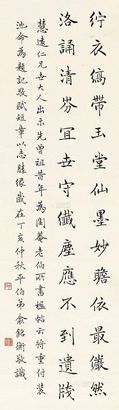 紵衣縞帶玉堂仙墨妙瞻依最儼然
洛誦清芬宜世守纖塵應不到遺牋
慧遠仁兄世大人出示先曾祖昔年為老伯所書楹帖云將重付裝
池命為題記敬賦短章以志勝緣歲在丁亥仲秋平伯弟俞銘衡敬識